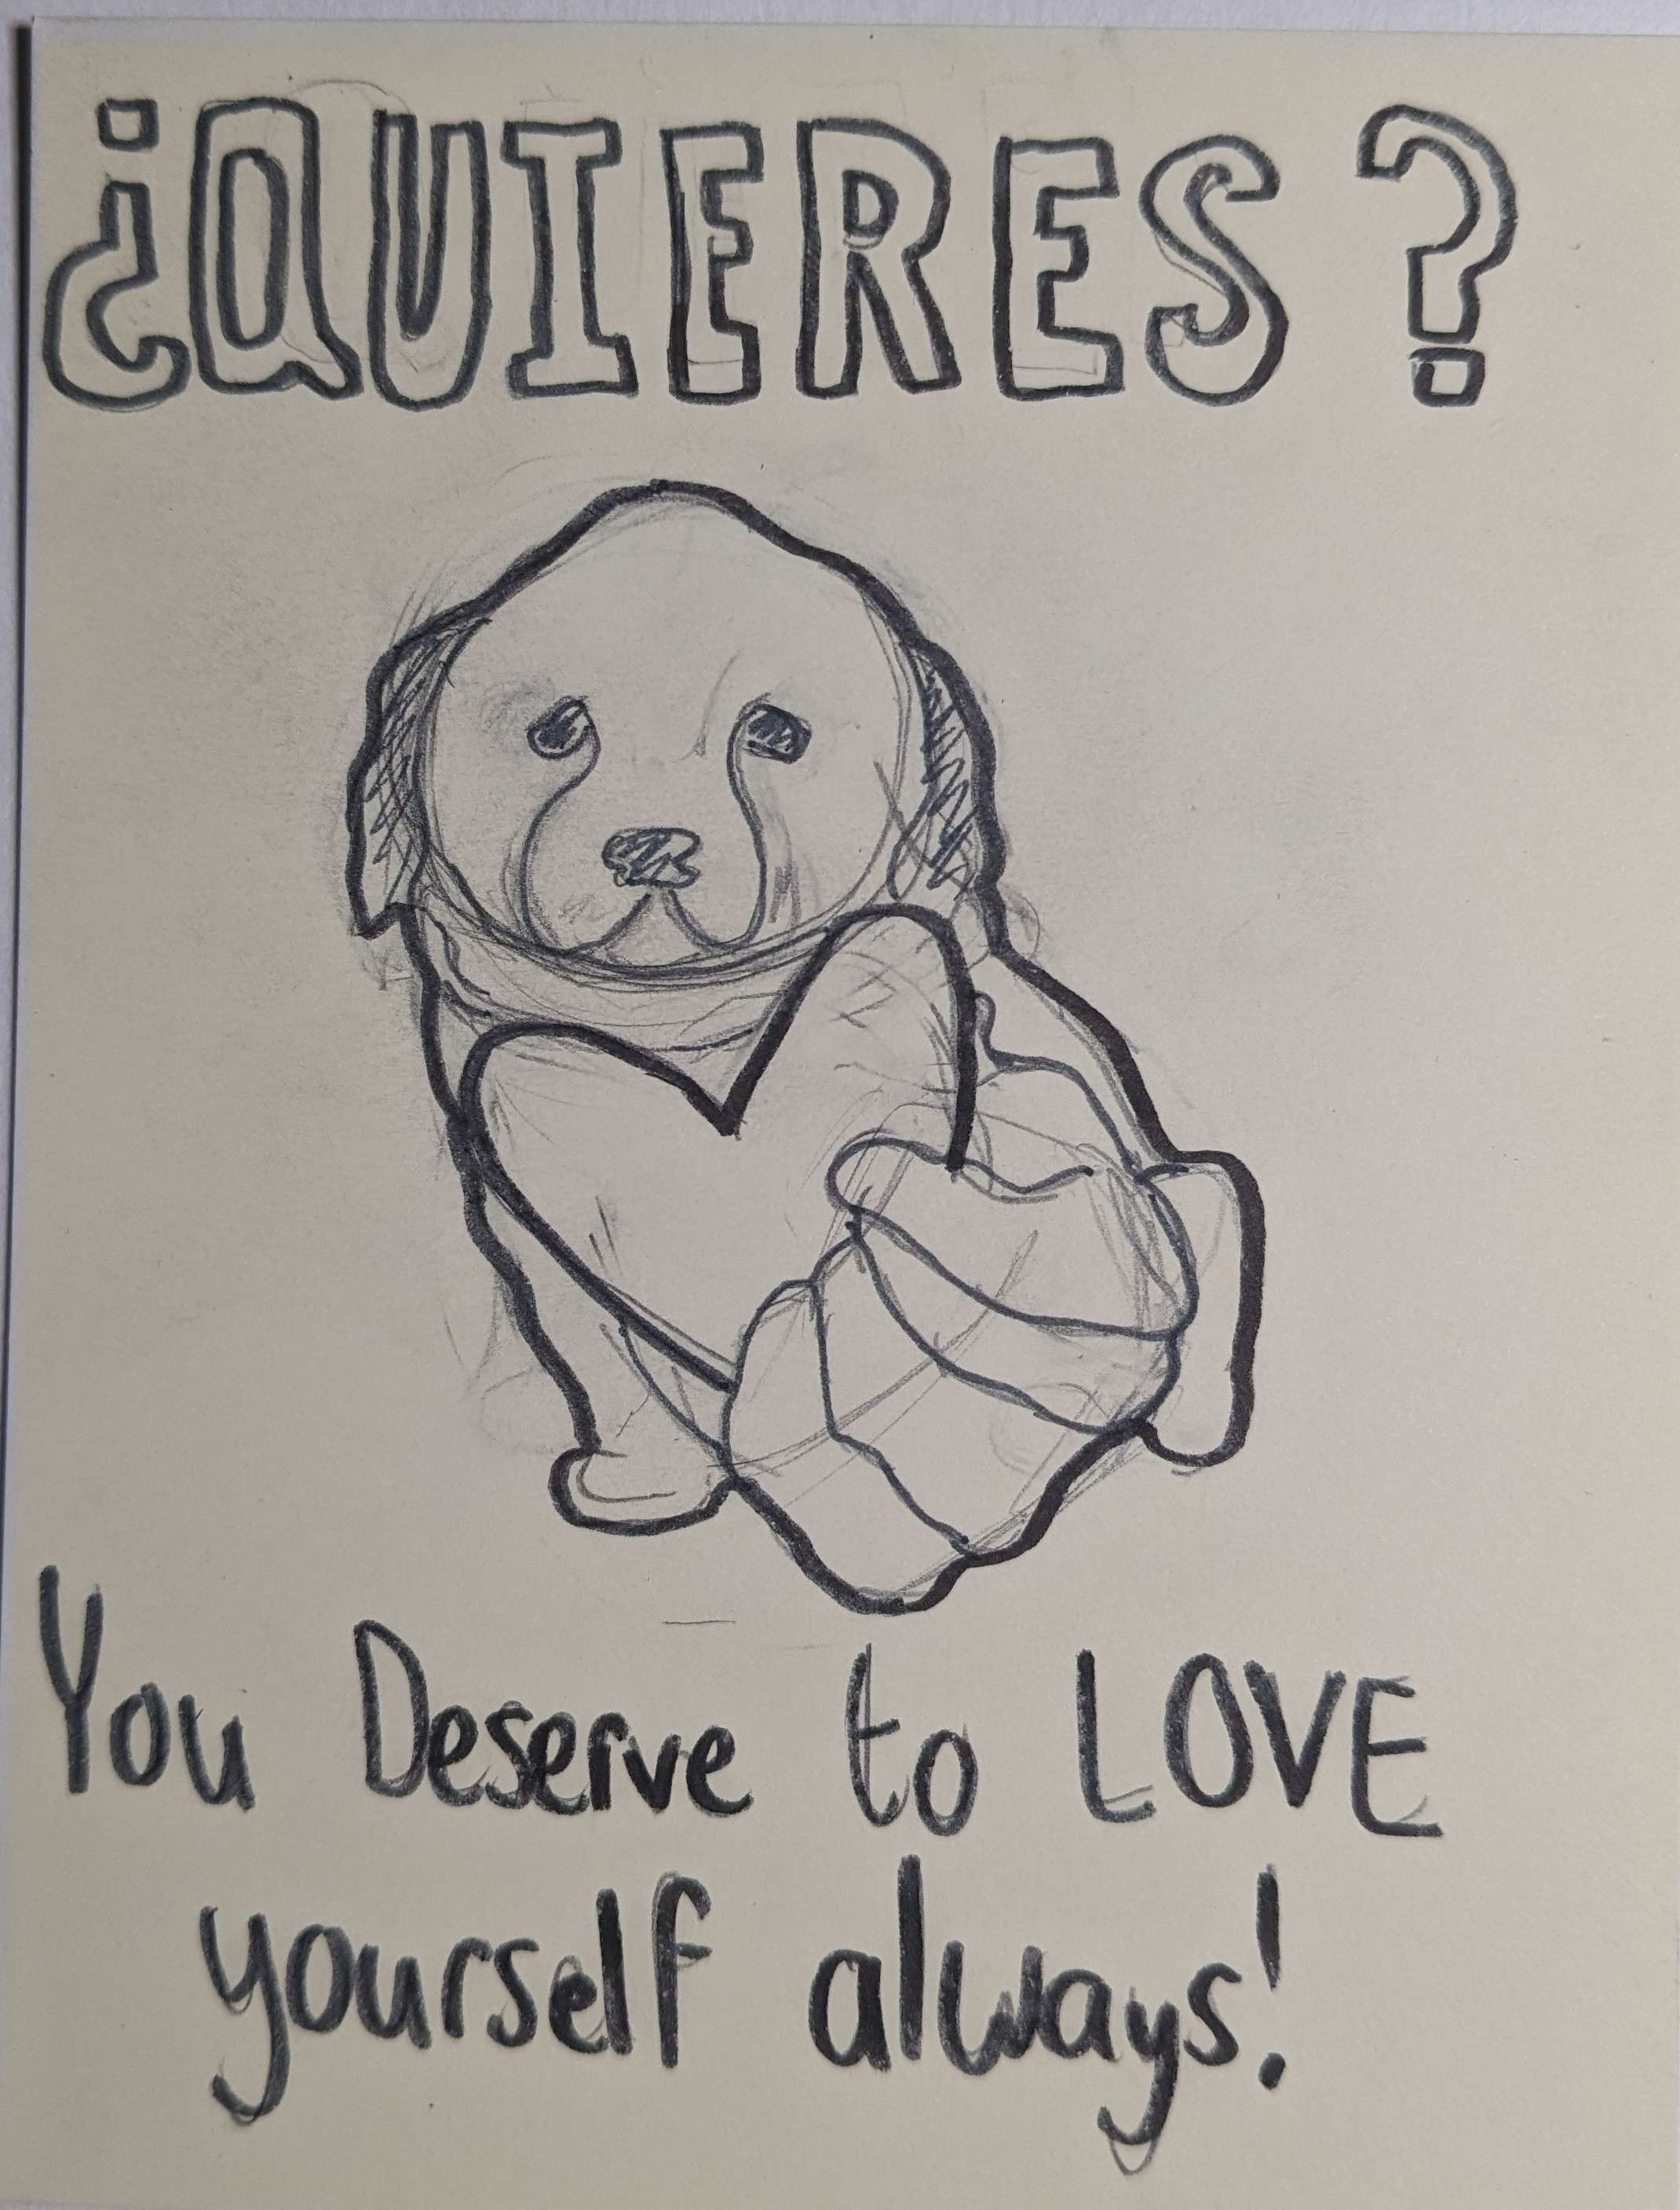 ¿QUIERES?
You Deserve to LOVE
yourself always!